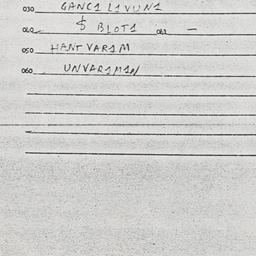 030 GANC1 L1VUN1
040 $ BLOT1 041 —
050 HANTVAR1M
060 UNVAR1M1N